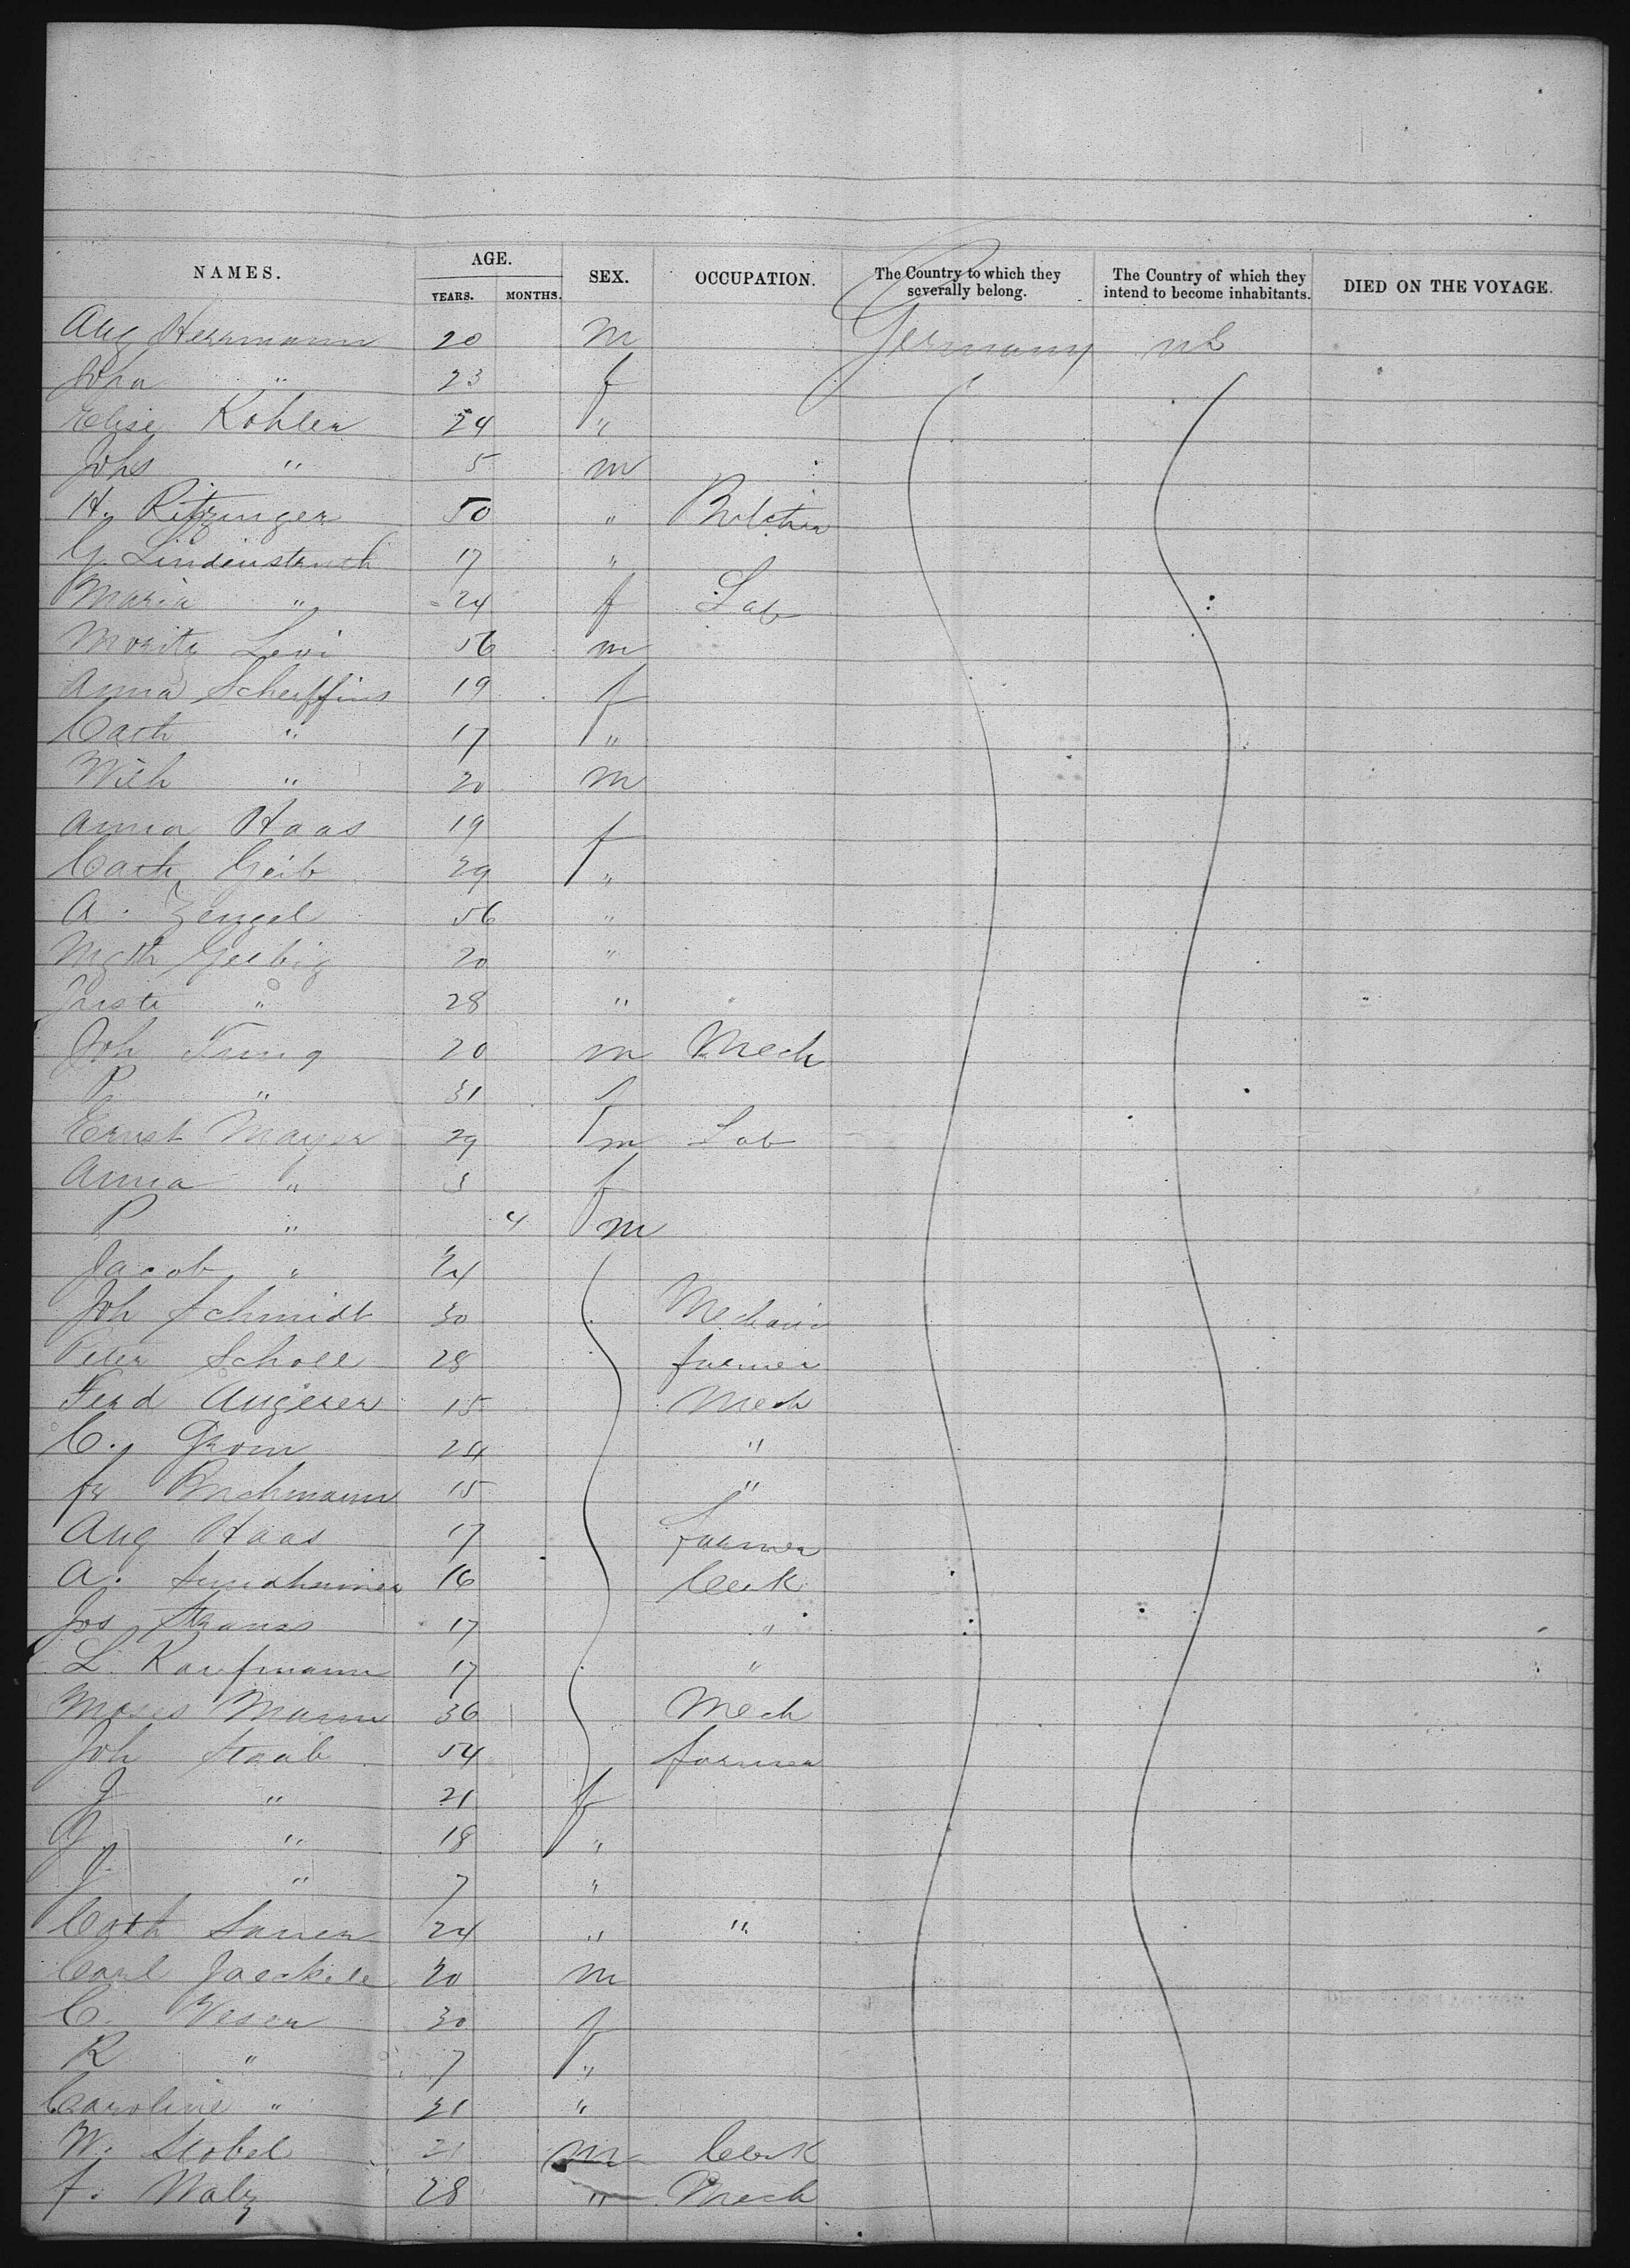 NAMES. AGE. SEX. OCCUPATION. The Country to which they severally belong. The Country of which they intend to become inhabitants. DIED ON THE VOYAGE.
YEARS. MONTHS.
Aug Herrmann 20 m Germany US
Joha " 23 f
Elise Kohler 24 "
Johs " 5 m
H. Ritzinger 50 " Butcher
G. Lindenstruth 17 "
Maria " 24 f Lab
Moritz Levi 56 m
Anna Scheffins 19 f
Cath " 17 "
Wilh " 20 m
Anna Haas 19 f
Cath Geib 29 "
A. Zengel 56 "
Mgth Geibig 20 "
" 28 "
Joh 20 m Mech
P " 31 f
Ernst Mayer 29 m Lab
Anna " 3 f
P " 4 m
Jacob " 24
Joh Schmidt 30 Mechanic
Peter Scholl 28 farmer
Ferd Angerer 15 Mech
C. Grom 24 "
fr Buchmann 15 "
Aug Haas 17 farmer
A. Sundheimer 16 Clerk
Jos Strauss 17 "
L. Kaufmann 17 "
Moses Mann 36 Mech
Joh Staab 54 farmer
J " 21 f
G " 18 "
J. " 7 "
Cath Sauer 24 " "
Carl Jaeckele 20 m
C. Weser 30 f
R " 7 "
Caroline " 21 "
W. Stobel 21 m Clerk
f. Walz 28 " Mech